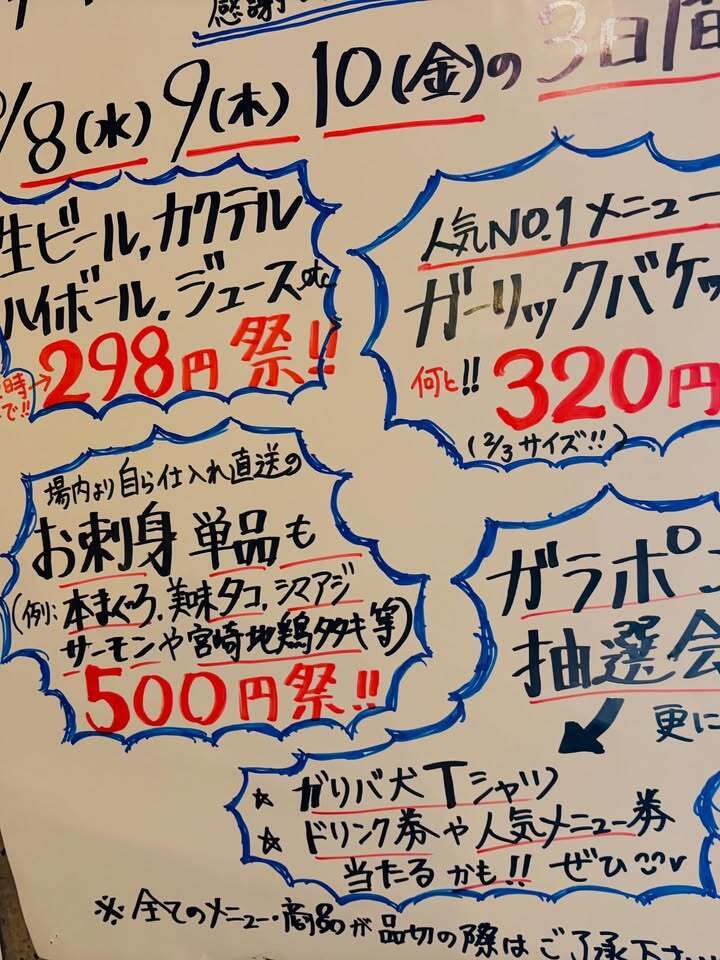 感謝
/8(水) 9(木) 10(金)の3日間
生ビール,カクテル
ハイボール,ジュースetc
時→298円祭!!
で!!
人気NO.1メニュー
ガーリックバケッ
何と!!320円
(2/3サイズ!!)
場内より自ら仕入れ直送の
お刺身単品も
(例:本まぐろ,美味タコ,シマアジ
サーモンや宮崎地鶏タタキ等)
500円祭!!
ガラポン
抽選会
更に
☆ ガリバ犬Tシャツ
☆ ドリンク券や人気メニュー券
当たるかも!! ぜひ
※全てのメニュー・商品が品切の際はご了承下さ...